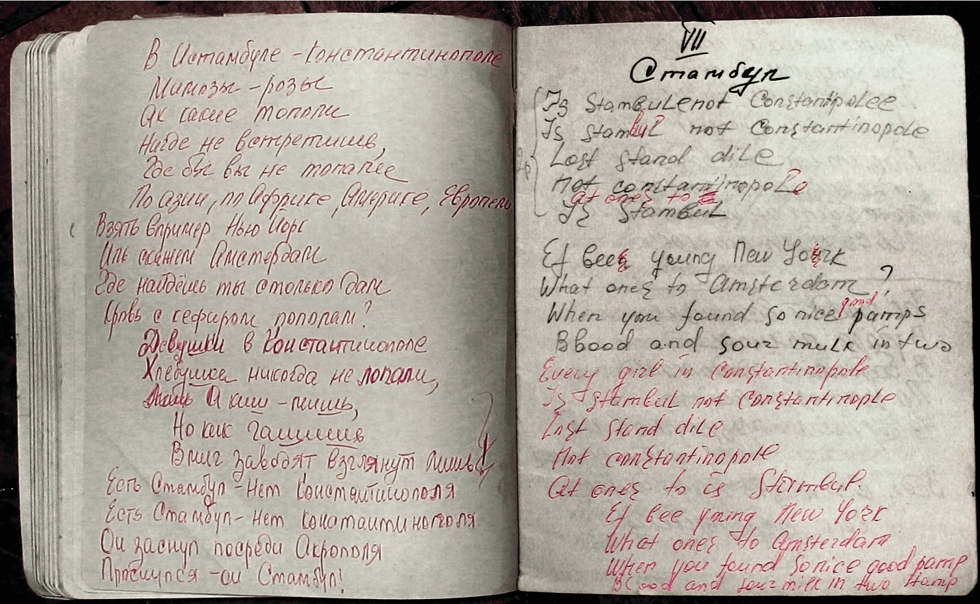 В Истамбуле - Константинополе
Мимозы - розы
Ах какие тополи
Нигде не встретишь,
Где бы вы не топалее
По азии, по Африке, Америке, Европели
Взять впример Нью Йорк
Иль скажем Амстердам
Где найдёшь ты столько дам
Кровь с кефиром пополам?
Девушки в Константинополе
Хлебушка никогда не лопали,
А киш-миш,
Но как гашишь
Вмиг заводят взглянут лишь
Есть Стамбул - нет Константинополя
Есть Стамбул - нет константинополя
Он заснул посреди Акрополя
Проснулся - он Стамбул!
VII
Стамбул
Is Stambulenot Constantipolee
Is Stambul not Constantinople
Last stand dile
Not constantinopole
at ones to
Is Stambul
Ef bee young New York
What ones to Amsterdam?
good
When you found so nice pamps
Bbood and sour mulk in two
Every girl in constantinopole
Is Stambul not constantinople
Last stand dile
Not constantinopole
At ones to is Stambul
Ef bee young New York
What ones to Amsterdam
When you found so nice good pamp
Blood and sour milk in two stamp